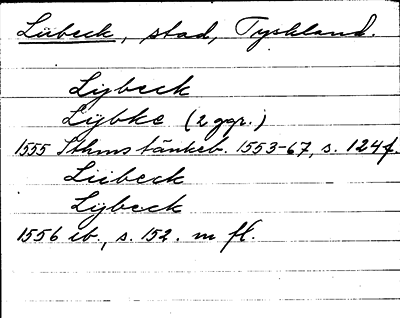 Lübeck, stad, Tyskland.
Lÿbeck
Lÿbke (2 ggr.)
1555 Sthms tänkeb. 1553-67, s. 124 f.
Lübeck
Lÿbeck
1556 ib., s. 152. m fl.